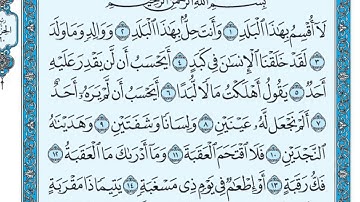 بِسْمِ اللَّهِ الرَّحْمَٰنِ الرَّحِيمِ
لَا أُقْسِمُ بِهَٰذَا الْبَلَدِ ١ وَأَنتَ حِلٌّ بِهَٰذَا الْبَلَدِ ٢ وَوَالِدٍ وَمَا وَلَدَ
٣ لَقَدْ خَلَقْنَا الْإِنسَٰنَ فِي كَبَدٍ ٤ أَيَحْسَبُ أَن لَّن يَقْدِرَ عَلَيْهِ
أَحَدٌ ٥ يَقُولُ أَهْلَكْتُ مَالًا لُّبَدًا ٦ أَيَحْسَبُ أَن لَّمْ يَرَهُۥ أَحَدٌ
٧ أَلَمْ نَجْعَل لَّهُۥ عَيْنَيْنِ ٨ وَلِسَانًا وَشَفَتَيْنِ ٩ وَهَدَيْنَٰهُ
النَّجْدَيْنِ ١٠ فَلَا اقْتَحَمَ الْعَقَبَةَ ١١ وَمَا أَدْرَىٰكَ مَا الْعَقَبَةُ ١٢
فَكُّ رَقَبَةٍ ١٣ أَوْ إِطْعَٰمٌ فِي يَوْمٍ ذِي مَسْغَبَةٍ ١٤ يَتِيمًا ذَا مَقْرَبَةٍ